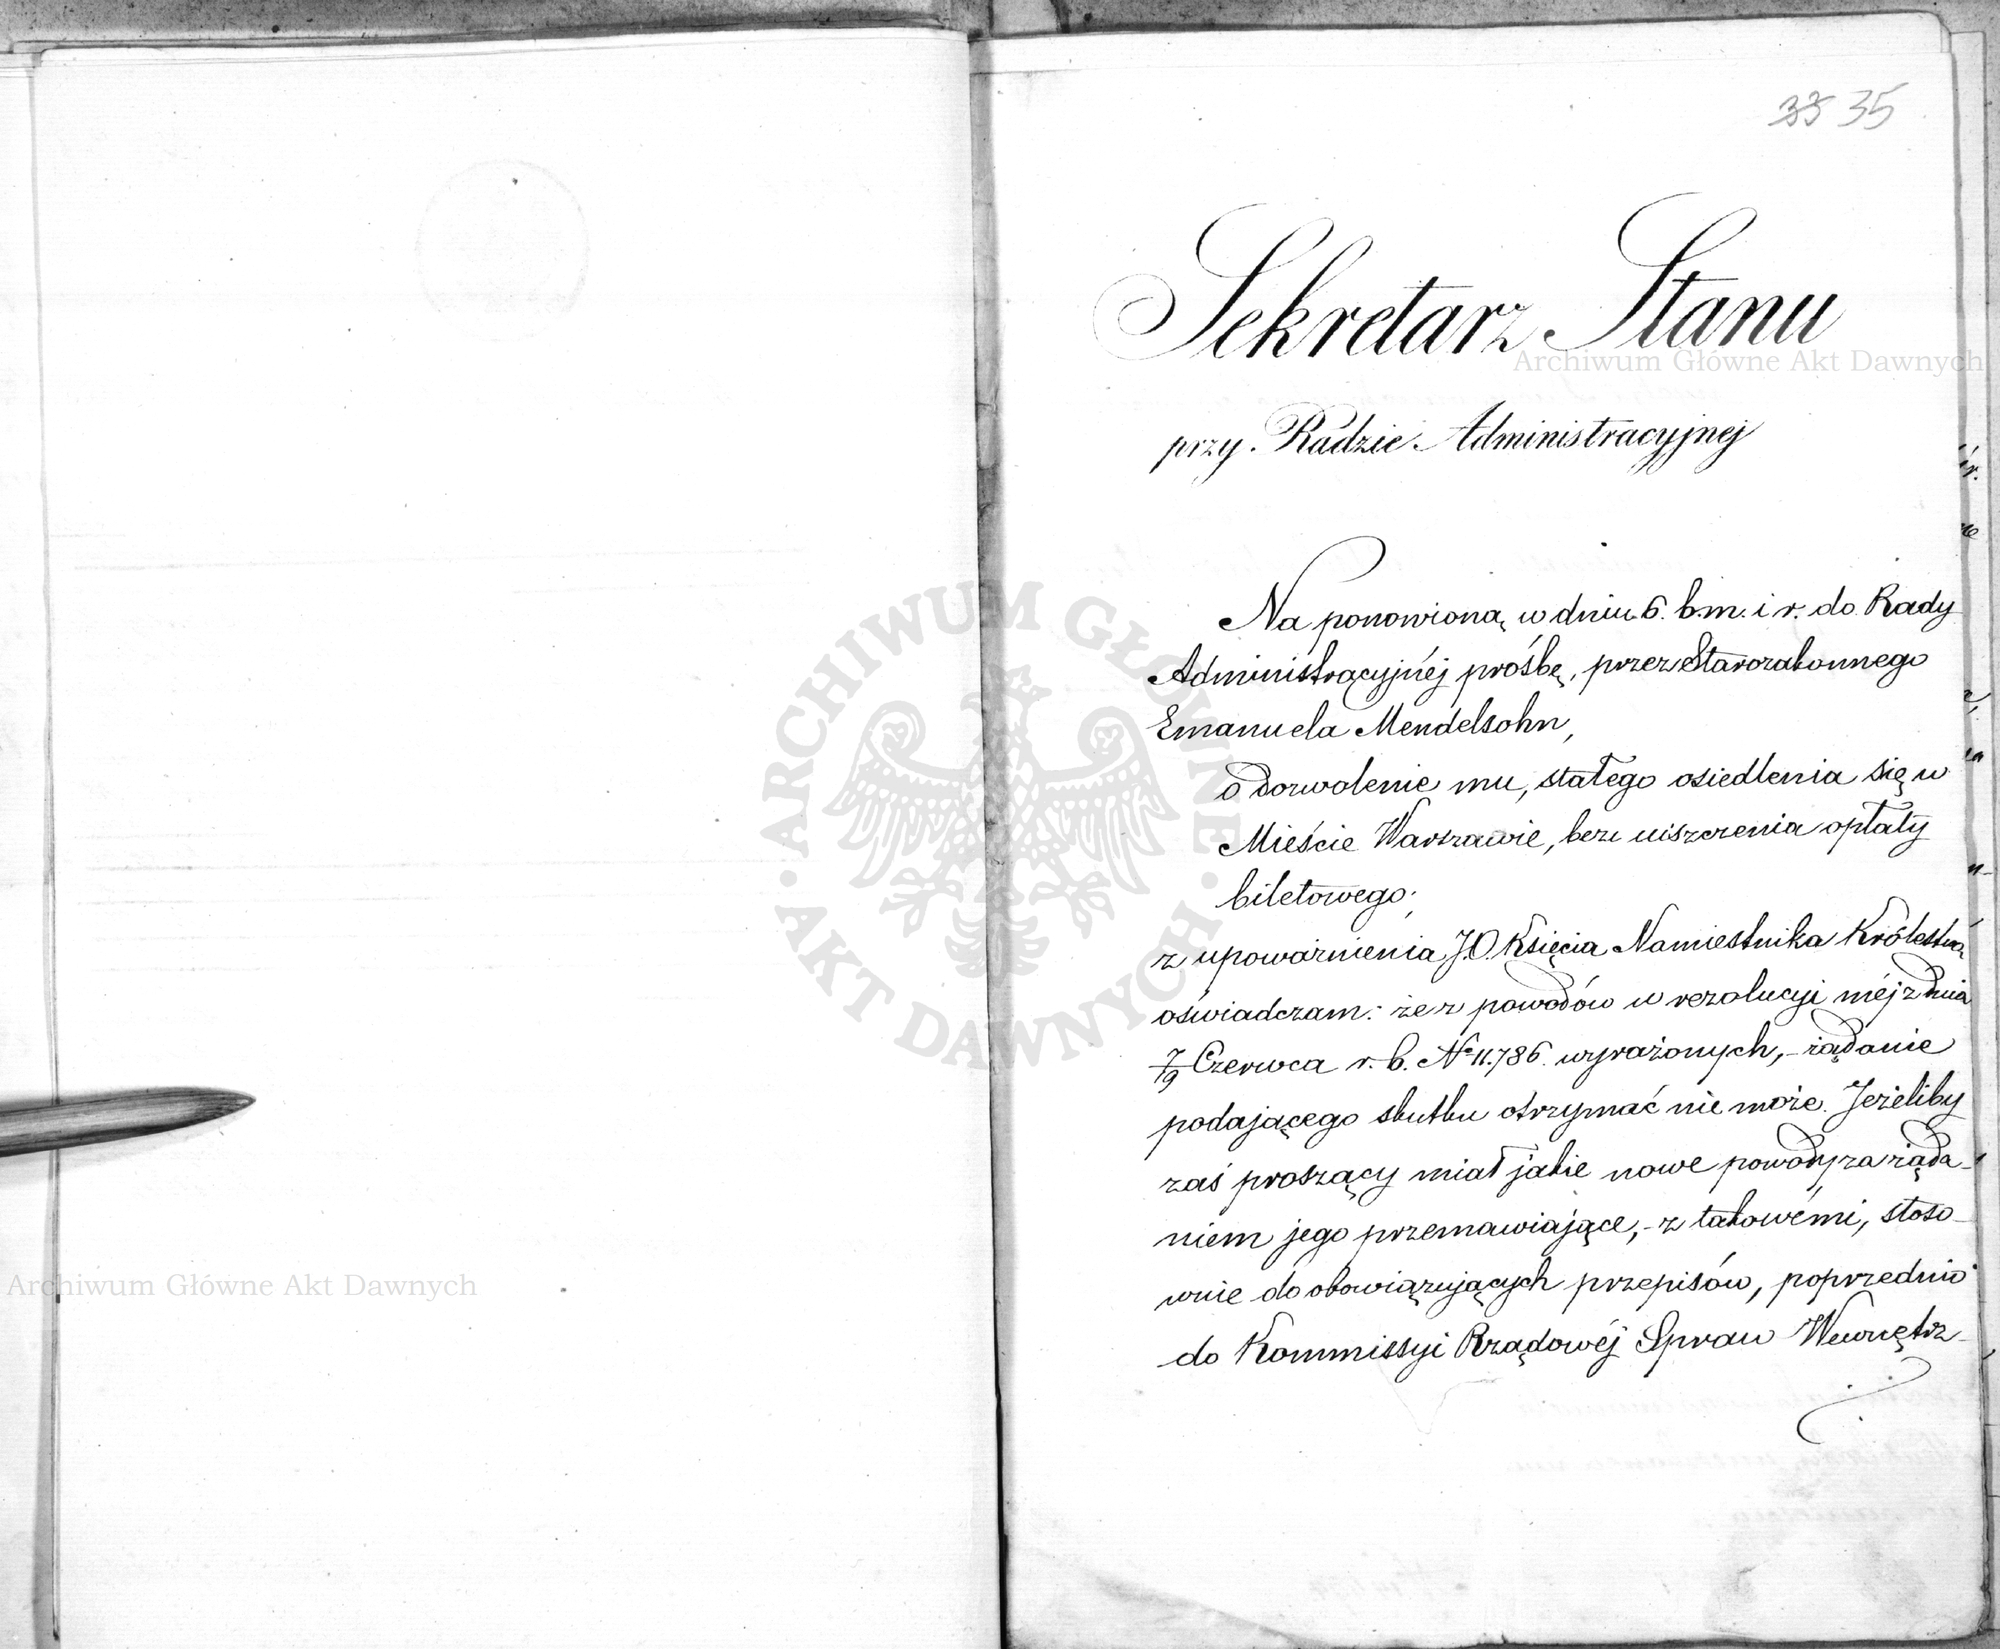 33 35
Sekretarz Stanu
Archiwum Główne Akt Dawnych
przy Radzie Administracyjnej
Na ponowioną w dniu 6. b.m. i r. do Rady
Administracyjnéj prośbę, przez Starozakonnego
Emanuela Mendelsohn,
o dozwolenie mu, stałego osiedlenia się w
Mieście Warszawie, bez uiszczenia opłaty
biletowego;
z upoważnienia J.O. Księcia Namiestnika Królestwa,
oświadczam: że z powodów w rezolucyi méj z dnia
7/19 Czerwca r. b. No 11.786. wyrażonych, – żądanie
podającego skutku otrzymać nie może. Jeżeliby
zaś proszący miał jakie nowe powody za żąda-
niem jego przemawiające, – z takowémi, stoso-
wnie do obowiązujących przepisów, poprzednio
do Kommissyi Rządowéj Spraw Wewnętrz-
ARCHIWUM GŁÓWNE · AKT DAWNYCH ·
Archiwum Główne Akt Dawnych